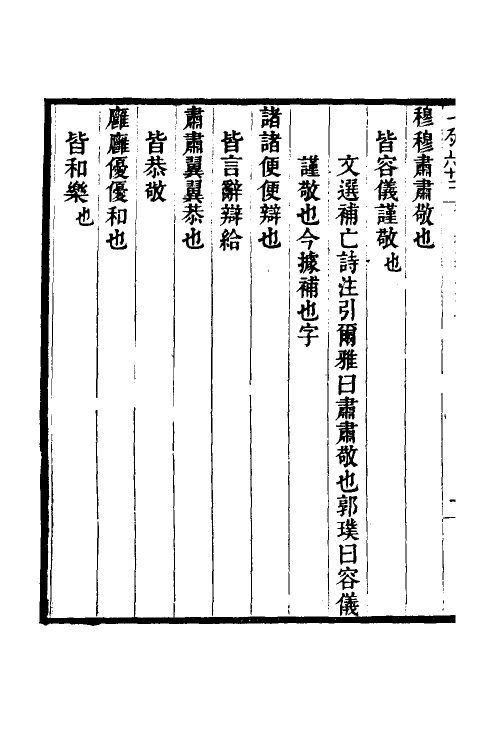 穆穆肅肅敬也
皆容儀謹敬也
文選補亡詩注引爾雅曰肅肅敬也郭璞曰容儀
謹敬也今據補也字
諸諸便便辯也
皆言辭辯給
肅肅翼翼恭也
皆恭敬
廱廱優優和也
皆和樂也